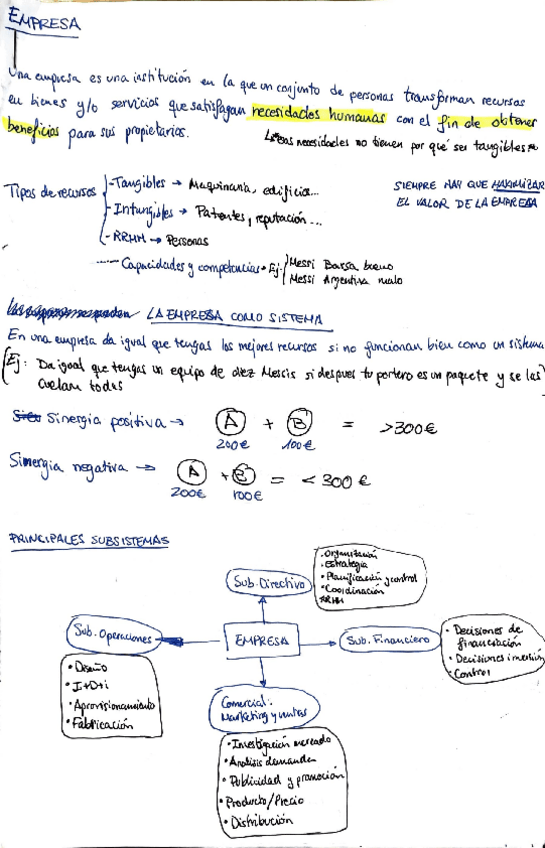 EMPRESA
Una empresa es una institución en la que un conjunto de personas transforman recursos
en bienes y/o servicios que satisfagan necesidades humanas con el fin de obtener
beneficios para sus propietarios.
↳ esas necesidades no tienen por qué ser tangibles
Tipos de recursos
- Tangibles → Maquinaria, edificios...
- Intangibles → Patentes, reputación...
- RRHH → Personas
Capacidades y competencias • Ej: Messi Barsa bueno
Messi Argentina malo
SIEMPRE HAY QUE MAXIMIZAR
EL VALOR DE LA EMPRESA
LA EMPRESA COMO SISTEMA
En una empresa da igual que tengas los mejores recursos si no funcionan bien como un sistema
Ej: Da igual que tengas un equipo de diez Messis si despues tu portero es un paquete y se las
cuelan todas
Sinergia positiva → A + B = >300€
200€ 100€
Sinergia negativa → A + B = < 300 €
200€ 100€
PRINCIPALES SUBSISTEMAS
Sub. Directivo
• Organización
• Estrategia
• Planificación y control
• Coordinación
RRHH
Sub. Operaciones
EMPRESA
Sub. Financiero
• Decisiones de
financiación
• Decisiones inversión
• Control
• Diseño
• I+D+i
• Aprovisionamiento
• Fabricación
Comercial:
Marketing y ventas
• Investigación mercado
• Análisis demanda
• Publicidad y promoción
• Producto/Precio
• Distribución